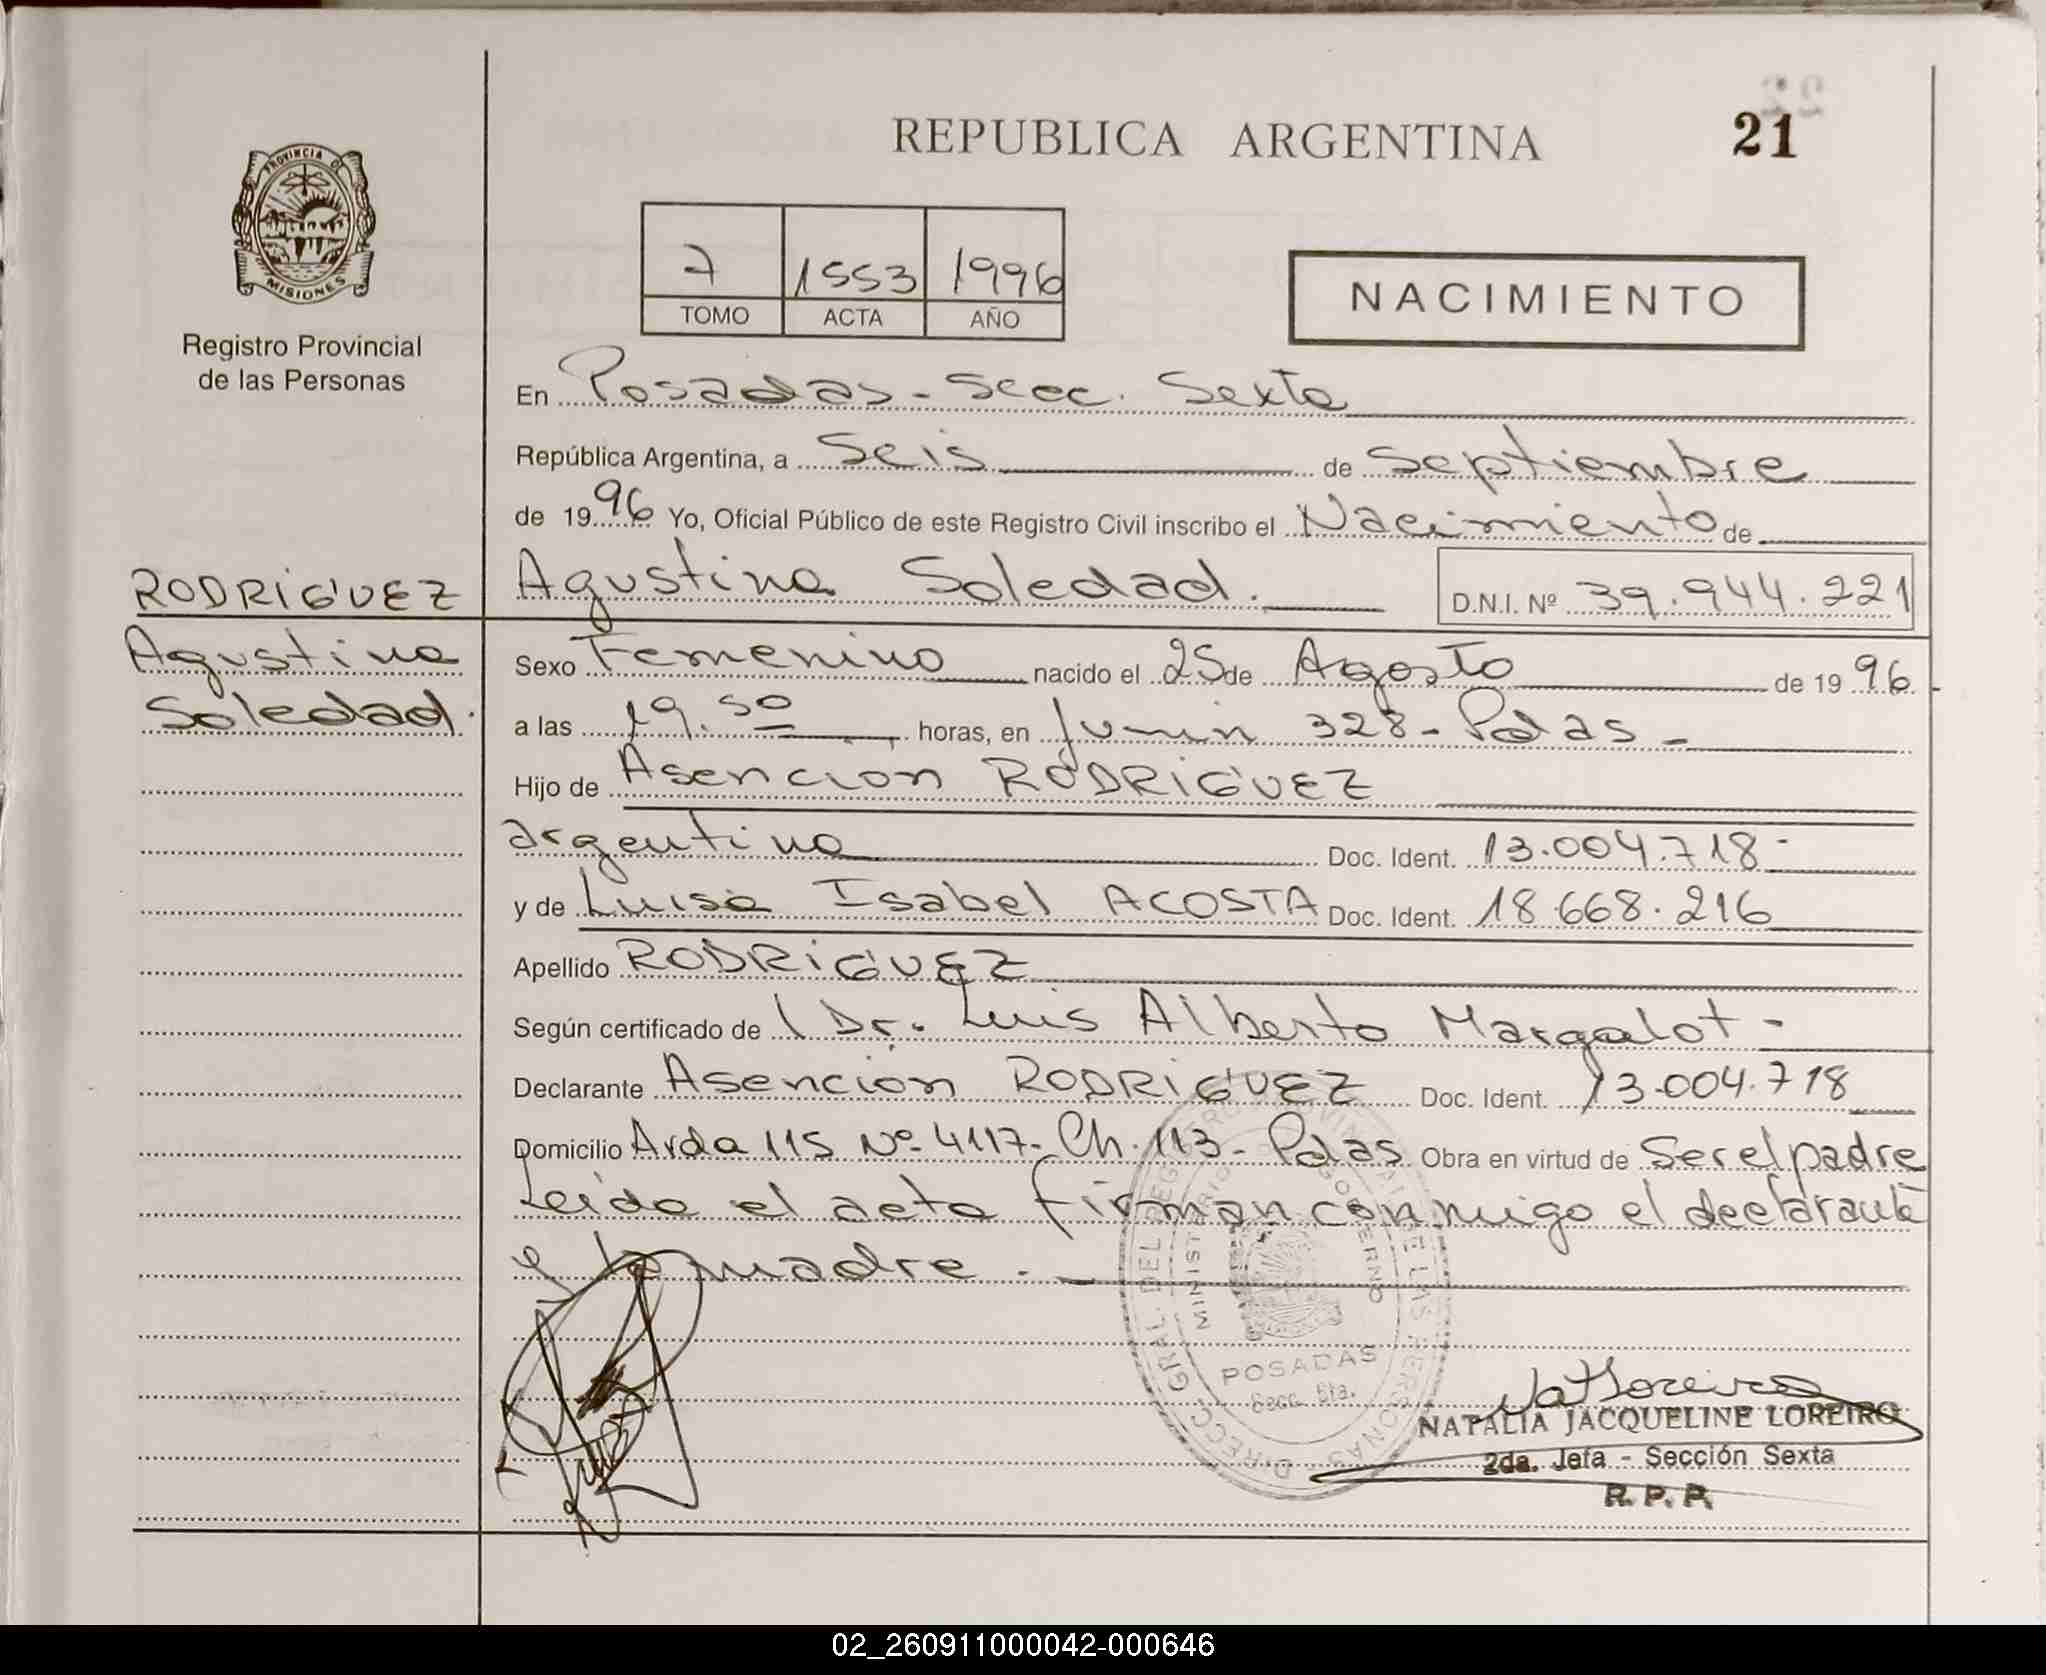 REPUBLICA ARGENTINA
21
PROVINCIA DE
MISIONES
Registro Provincial
de las Personas
7 1553 1996
TOMO ACTA AÑO
NACIMIENTO
En Posadas - Secc. Sexta
República Argentina, a Seis de Septiembre
de 1996 Yo, Oficial Público de este Registro Civil inscribo el Nacimiento de
RODRíGUEZ
Agustina
Soledad.
Agustina Soledad. D.N.I. Nº 39.944.221
Sexo Femenino nacido el 25 de Agosto de 1996
a las 19.50 horas, en Junin 328 - Pdas -
Hijo de Asención RODRíGUEZ
argentina Doc. Ident. 13.004.718-
y de Luisa Isabel ACOSTA Doc. Ident. 18.668.216
Apellido RODRíGUEZ
Según certificado de l Dr. Luis Alberto Margalot -
Declarante Asención RODRíGUEZ Doc. Ident. 13.004.718
Domicilio Avda 115 Nº 4117- Ch. 113 - Pdas Obra en virtud de Ser el padre
Leida el acta firman conmigo el declarante
y la madre. -
DIRECC. GRAL. DEL REGISTRO PROVINCIAL DE LAS PERSONAS
MINISTERIO DE GOBIERNO
POSADAS
Secc. 6ta.
NATALIA JACQUELINE LOREIRO
2da. Jefa - Sección Sexta
R. P. P.
02_260911000042-000646